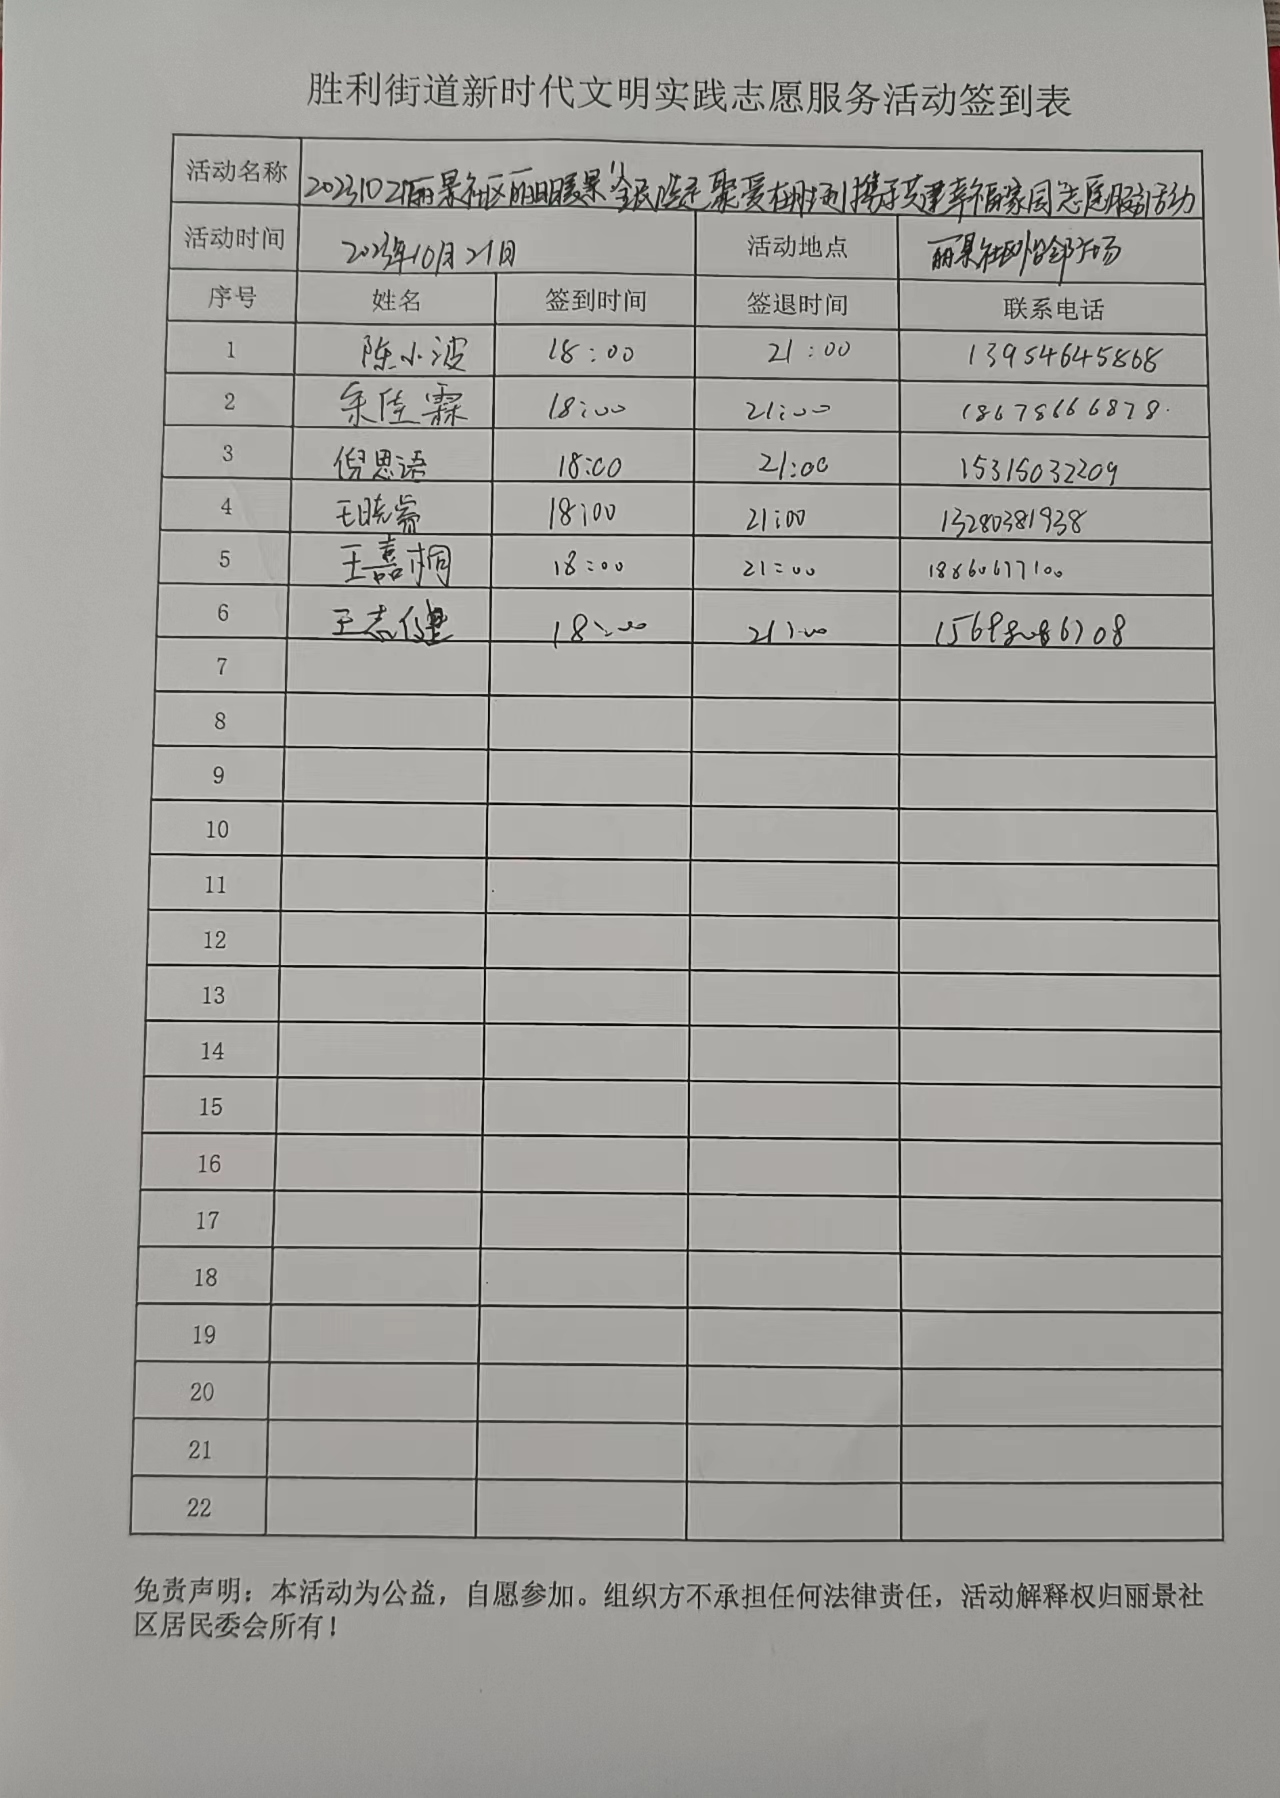 胜利街道新时代文明实践志愿服务活动签到表
活动名称 20231021丽景社区丽日暖景"全民 聚爱在胜利 携手共建幸福家园志愿服务活动
活动时间 2023年10月21日 活动地点 丽景社区怡邻广场
序号 姓名 签到时间 签退时间 联系电话
1 陈小波 18:00 21:00 13954645868
2 余佳霖 18:00 21:00 18678666878
3 倪思语 18:00 21:00 15315032209
4 王晓睿 18:00 21:00 13280381938
5 王嘉桐 18:00 21:00 18860677100
6 王志健 18:00 21:00
7
8
9
10
11
12
13
14
15
16
17
18
19
20
21
22
免责声明：本活动为公益，自愿参加。组织方不承担任何法律责任，活动解释权归丽景社
区居民委会所有！